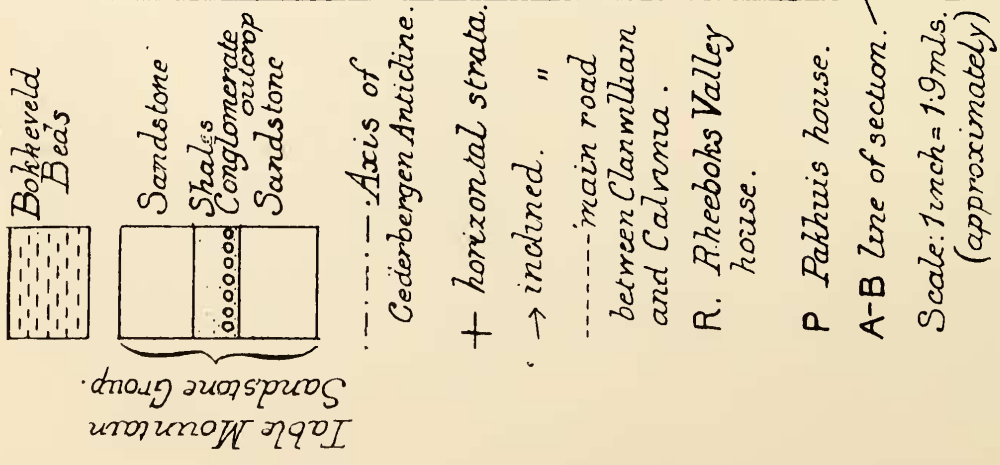 Bokkeveld
Beds
Table Mountain
Sandstone Group.
Sandstone
Shales
Conglomerate
outcrop
Sandstone
Axis of
Cederbergen Anticline.
+ horizontal strata.
→ inclined. "
main road
between Clanwilliam
and Calvinia.
R. Rheeboks Valley
house.
P Pakhuis house.
A-B line of section.
Scale. 1 inch = 1·9 mls.
(approximately)